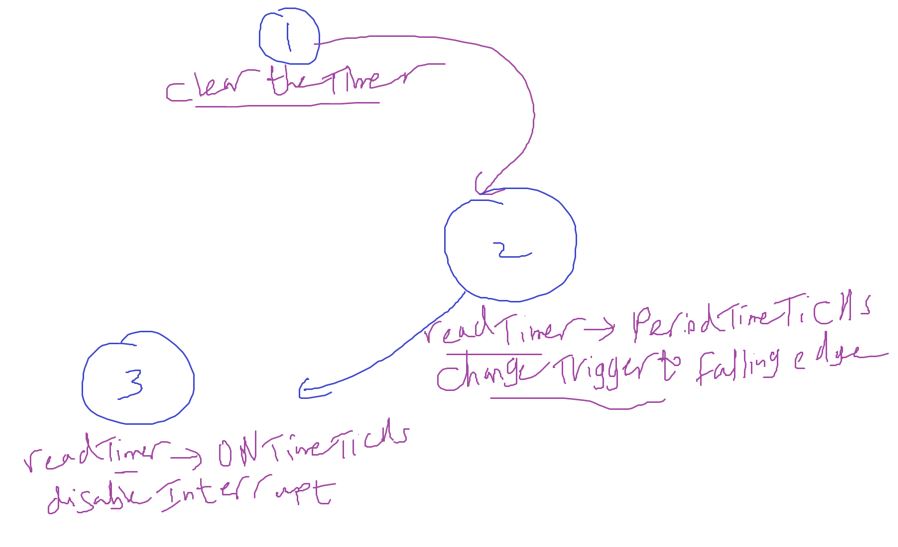 1
clear the Timer
2
readTimer → PeriodTimeTicks
change Trigger to falling edge
3
readTimer → ONTimeTicks
disable Interrupt